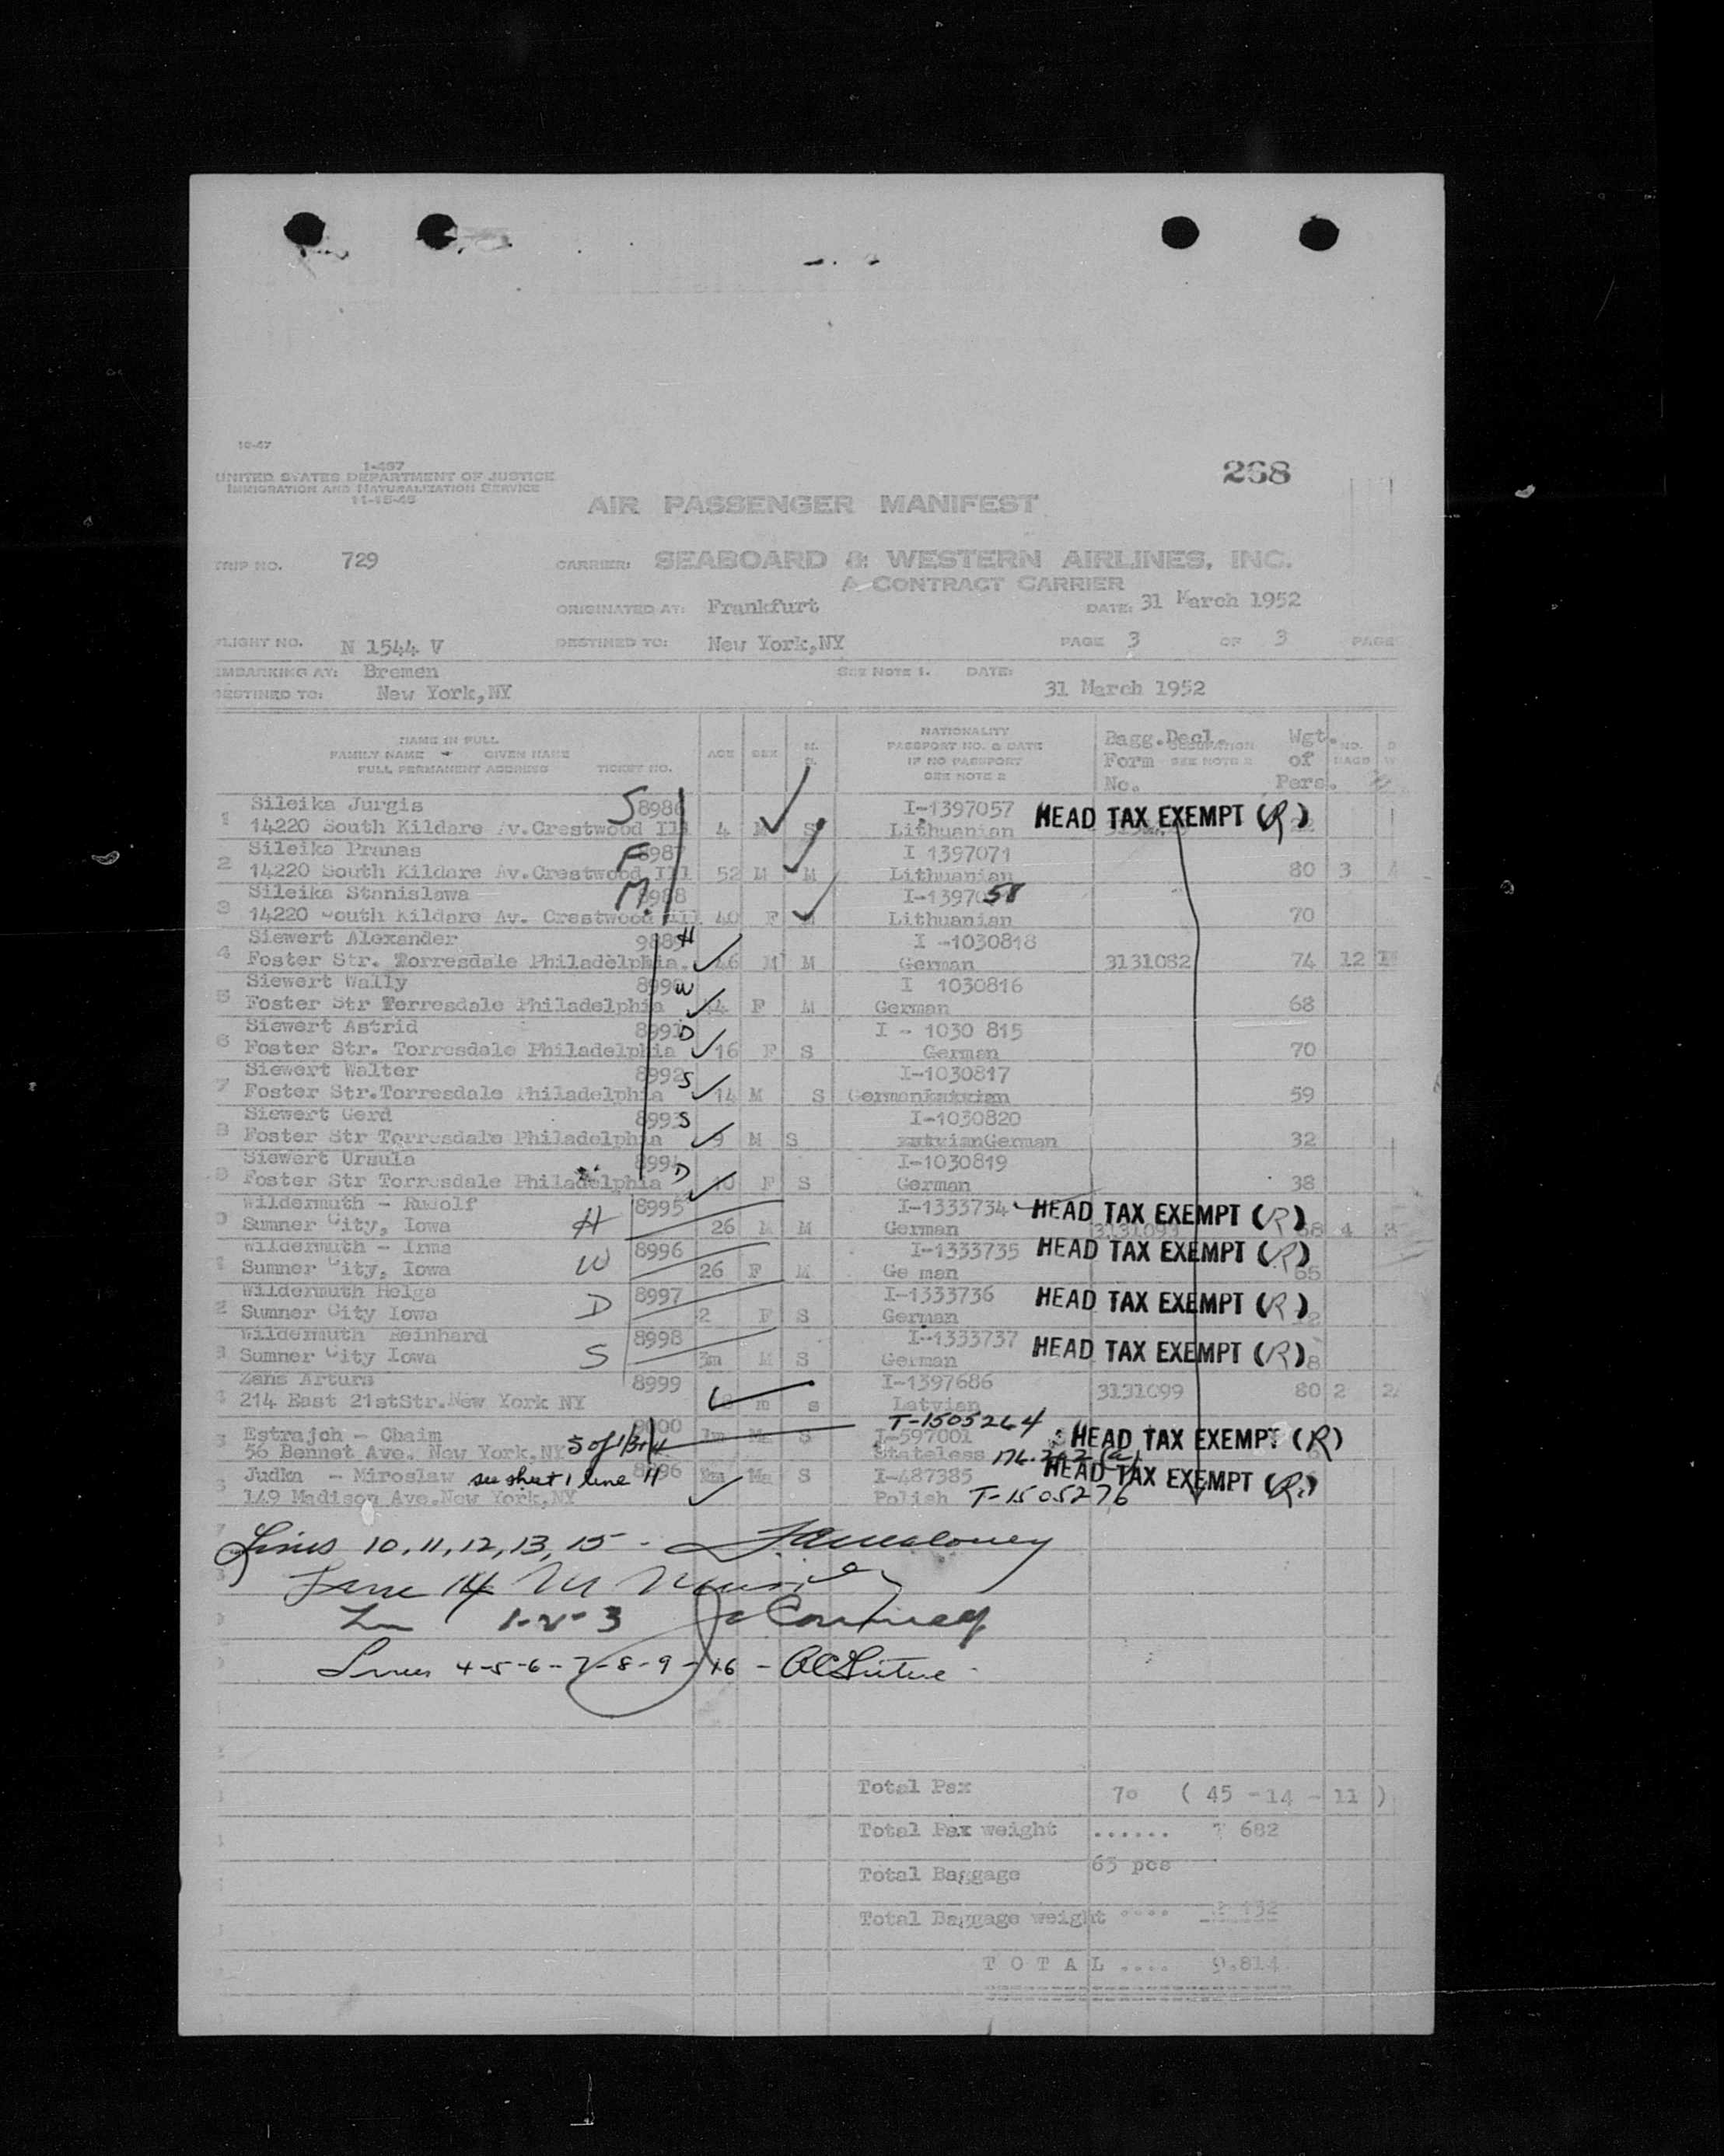 10-47
I-467
UNITED STATES DEPARTMENT OF JUSTICE
IMMIGRATION AND NATURALIZATION SERVICE
11-15-46
268
AIR PASSENGER MANIFEST
TRIP NO. 729 CARRIER: SEABOARD & WESTERN AIRLINES, INC.
A CONTRACT CARRIER
ORIGINATED AT: Frankfurt DATE: 31 March 1952
FLIGHT NO. N 1544 V DESTINED TO: New York,NY PAGE 3 OF 3 PAGE
EMBARKING AT: Bremen SEE NOTE 1. DATE:
DESTINED TO: New York,NY 31 March 1952
NAME IN FULL
FAMILY NAME - GIVEN NAME
FULL PERMANENT ADDRESS TICKET NO. AGE SEX M. S. NATIONALITY
PASSPORT NO. & DATE
IF NO PASSPORT
SEE NOTE 2
Bagg.Decl. OCCUPATION Wgt. NO.
Form SEE NOTE 2 of BAGS
No. Pers.
1 Sileika Jurgis S 8986 I-1397057 HEAD TAX EXEMPT (R)
14220 South Kildare Av.Crestwood Ill 4 M S Lithuanian
2 Sileika Pranas F 8987 I 1397071
14220 South Kildare Av.Crestwood Ill 52 M M Lithuanian 80 3
3 Sileika Stanislawa M. 8988 I-1397058
14220 South Kildare Av. Crestwood Ill 40 F M Lithuanian 70
4 Siewert Alexander 9889 H I -1030818
Foster Str. Torresdale Philadelphia. 46 M M German 3131082 74 12
5 Siewert Wally 8990 W I 1030816
Foster Str Torresdale Philadelphia 44 F M German 68
6 Siewert Astrid 8991 D I - 1030 815
Foster Str. Torresdale Philadelphia 16 F S German 70
7 Siewert Walter 8992 S I-1030817
Foster Str.Torresdale Philadelphia 14 M S German 59
8 Siewert Gerd 8993 S I-1030820
Foster Str Torresdale Philadelphia 9 M S German 32
9 Siewert Ursula 8994 D I-1030819
Foster Str Torresdale Philadelphia 10 F S German 38
0 Wildermuth - Rudolf H 8995 I-1333734 HEAD TAX EXEMPT (R)
Sumner City, Iowa 26 M M German 3131093 68 4
1 Wildermuth - Irma W 8996 I-1333735 HEAD TAX EXEMPT (R)
Sumner City, Iowa 26 F M Ge man 65
2 Wildermuth Helga D 8997 I-1333736 HEAD TAX EXEMPT (R)
Sumner City Iowa 2 F S German 12
3 Wildermuth Reinhard S 8998 I-1333737 HEAD TAX EXEMPT (R)
Sumner City Iowa 3m M S German 8
4 Zans Arturs 8999 I-1397686
214 East 21stStr.New York NY m s Latvian 3131099 80 2
T-1505264
Estrajch - Chaim 9000 Ma S I-597001 HEAD TAX EXEMPT (R)
56 Bennet Ave. New York,NY Stateless
Judka - Miroslaw see sheet 1 line 11 8996 Ma S I-487385 HEAD TAX EXEMPT (R)
149 Madison Ave.New York,NY Polish T-1505276
Lines 10, 11, 12, 13, 15 -
Line 14 M
1-2-3
Lines 4-5-6-7-8-9-16 -
Total Pax 70 ( 45 -14 - 11 )
Total Pax weight ...... 682
Total Baggage 63 pcs
Total Baggage weight ....
T O T A L .... 9.814